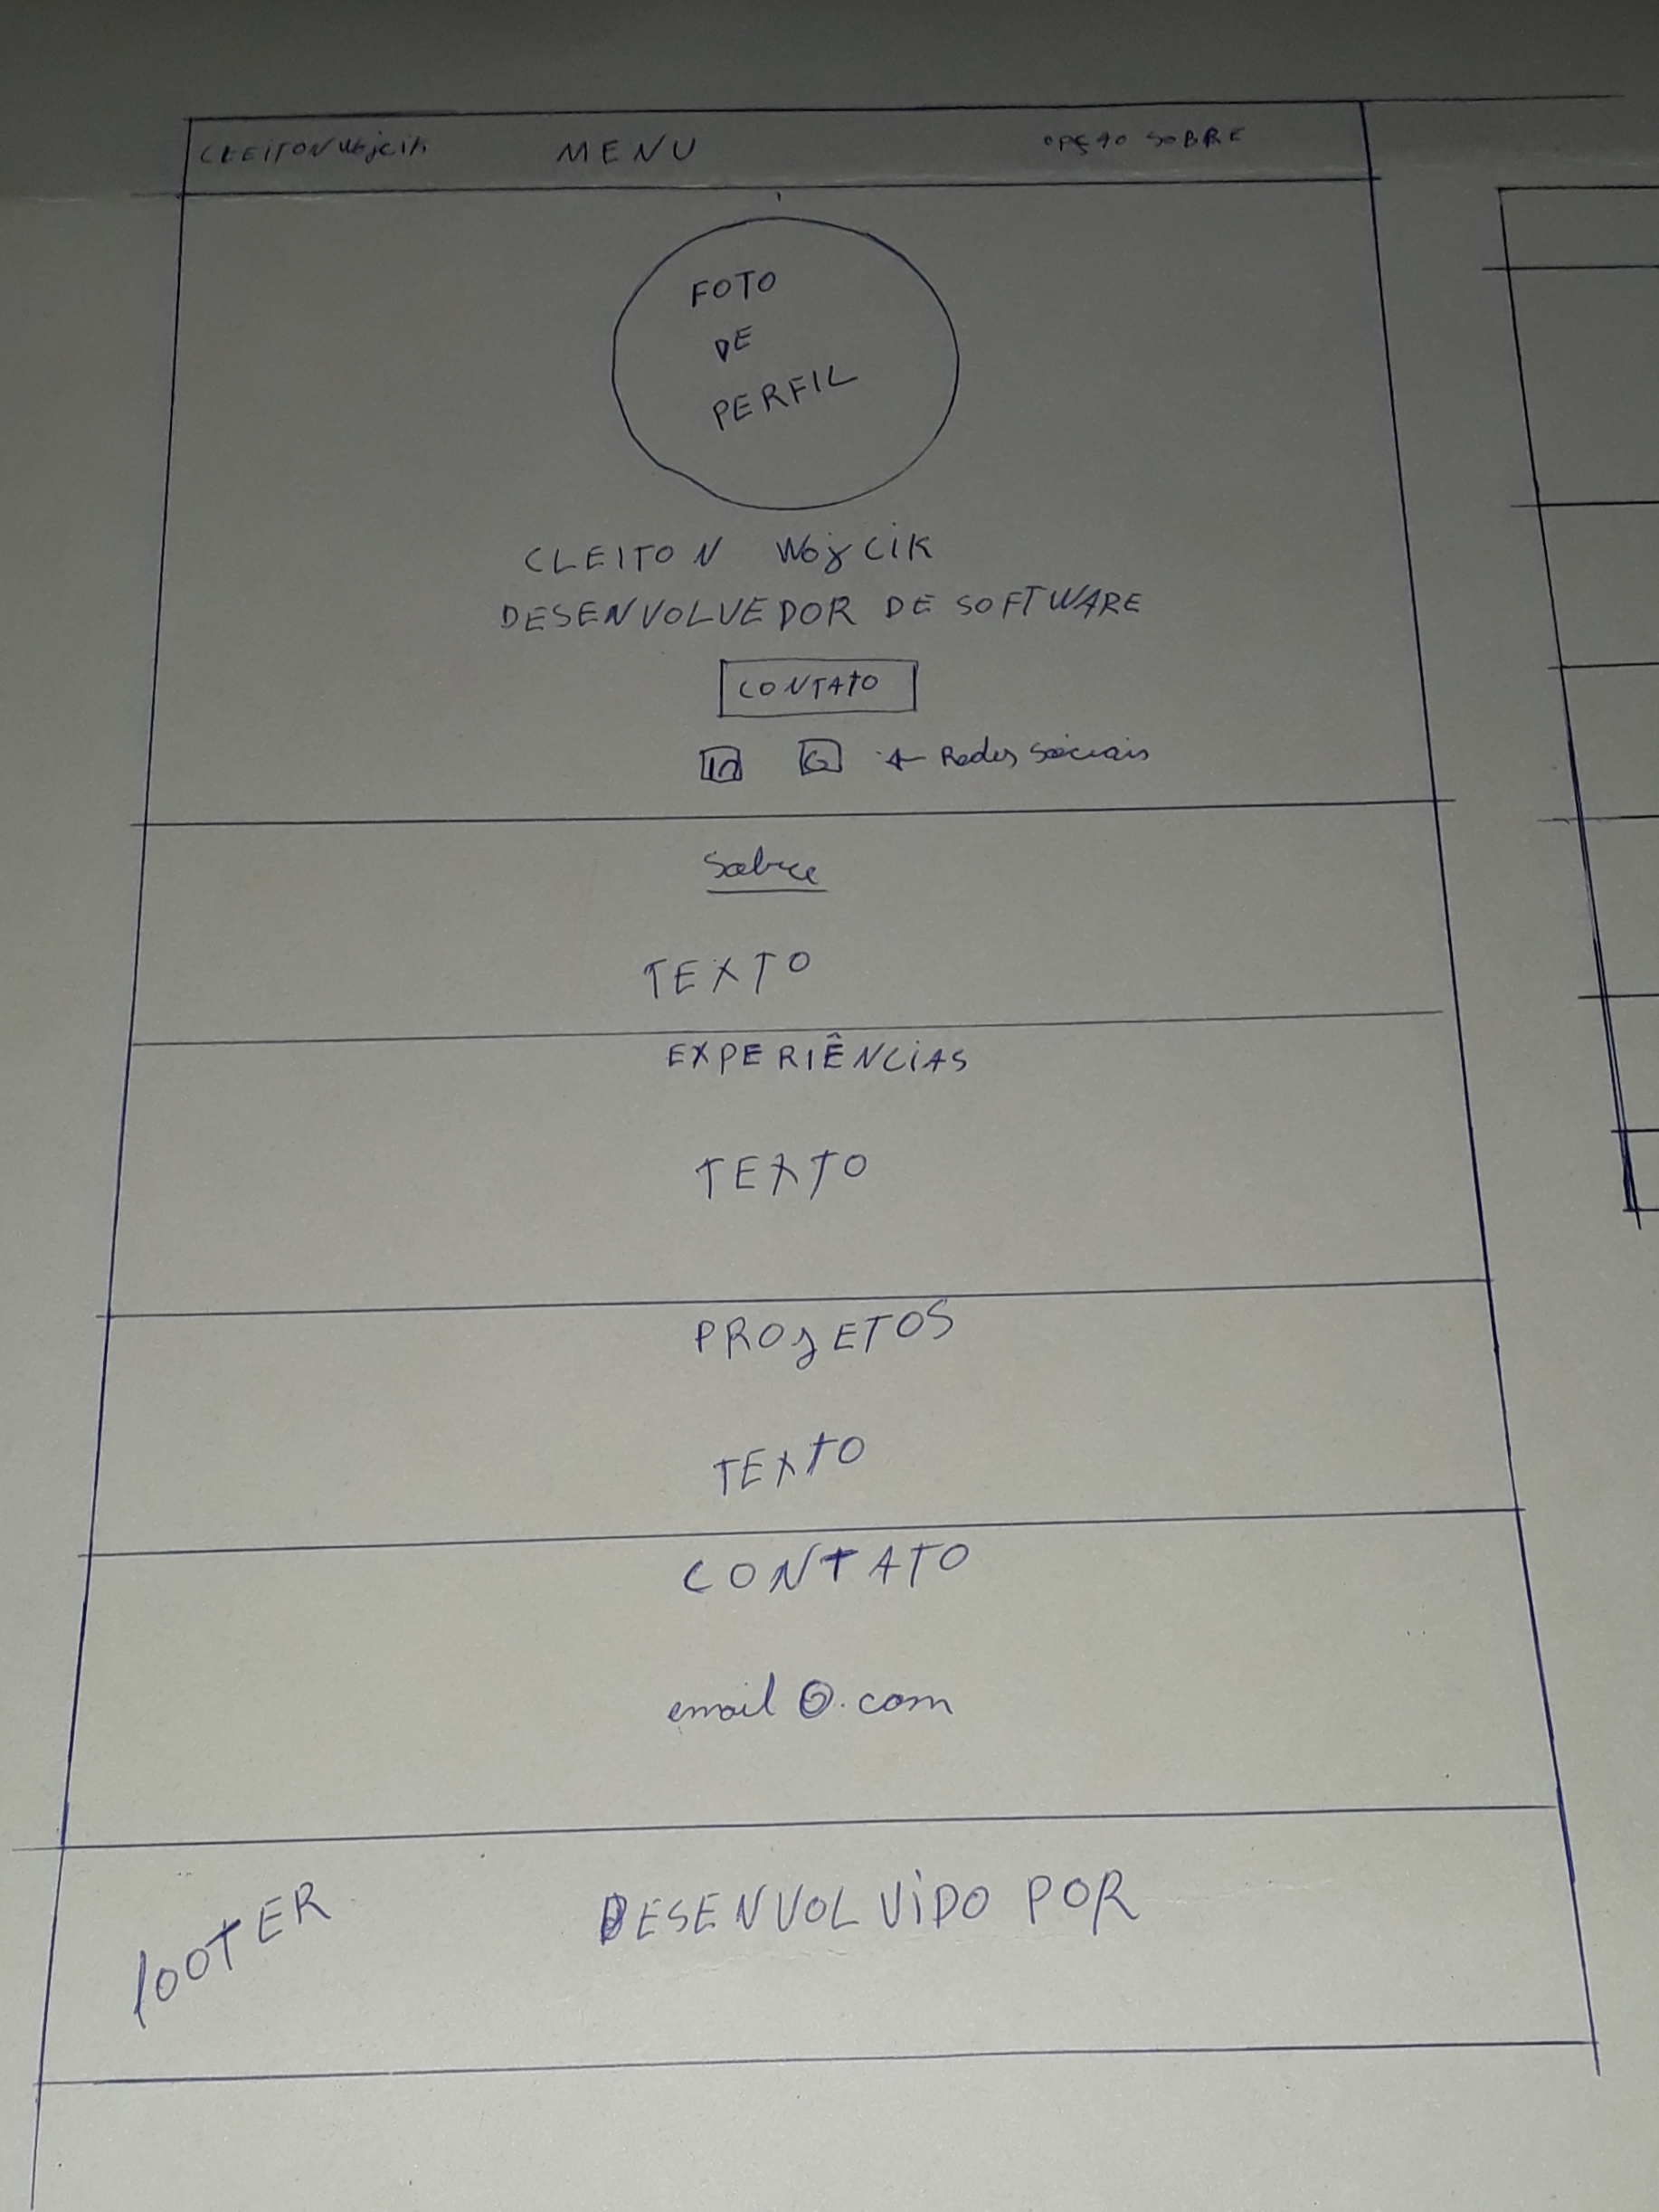 CLEITON Wojcik MENU OPÇÃO SOBRE
FOTO
DE
PERFIL
CLEITON Wojcik
DESENVOLVEDOR DE SOFTWARE
CONTATO
in G ← Redes Sociais
Sobre
TEXTO
EXPERIÊNCIAS
TEXTO
PROJETOS
TEXTO
CONTATO
email @.com
FOOTER DESENVOLVIDO POR